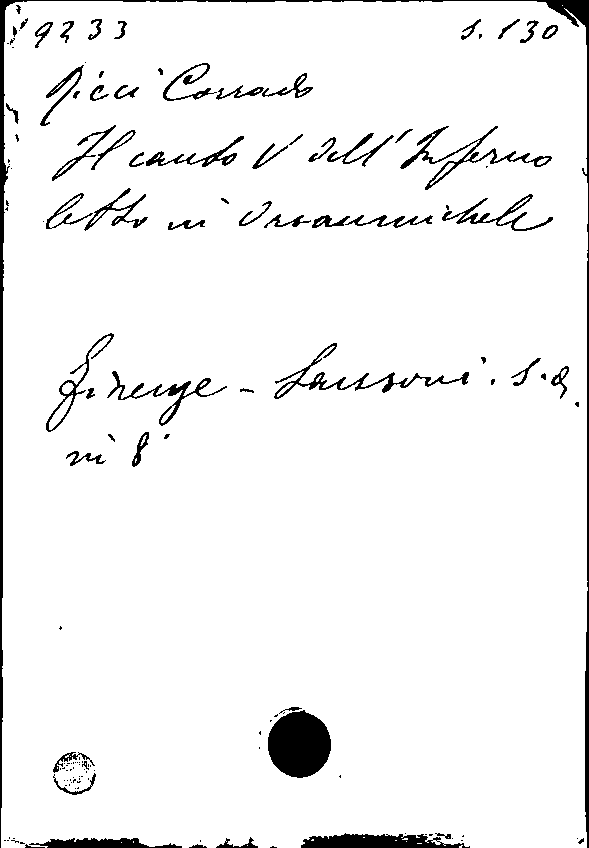 9233 S. 130
Ricci Corrado
Il canto V dell'Inferno
letto in Orsanmichele
Firenze - Sansoni. s. a.
in 8°